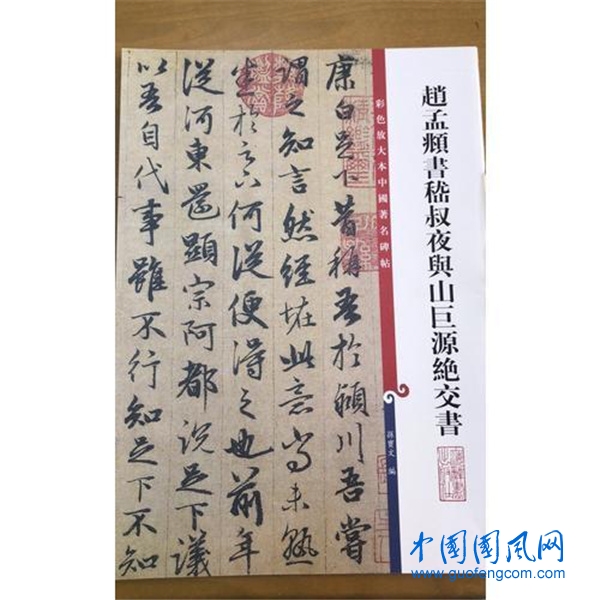 趙孟頫書嵇叔夜與山巨源絶交書
彩色放大本中國著名碑帖
孫寶文 編
康白足下昔稱吾於潁川吾嘗
謂之知言然經怪此意尚未熟
悉於之六何從便得之也前年
從河東還顯宗阿都說足下議
以吾自代事雖不行知足下不知
中国国风网
www.guofengcom.com